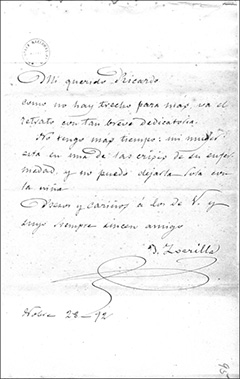 Mi querido Ricardo
como no hay trecho para mas, va el
retrato con tan breve dedicatoria.
No tengo mas tiempo: mi muger
está en una de las crisis de su enfer
medad, y no puedo dejarla sola con
la niña
Besos y cariños á los de V. y
suyo siempre sincero amigo
J. Zorrilla
Nobre 28-92